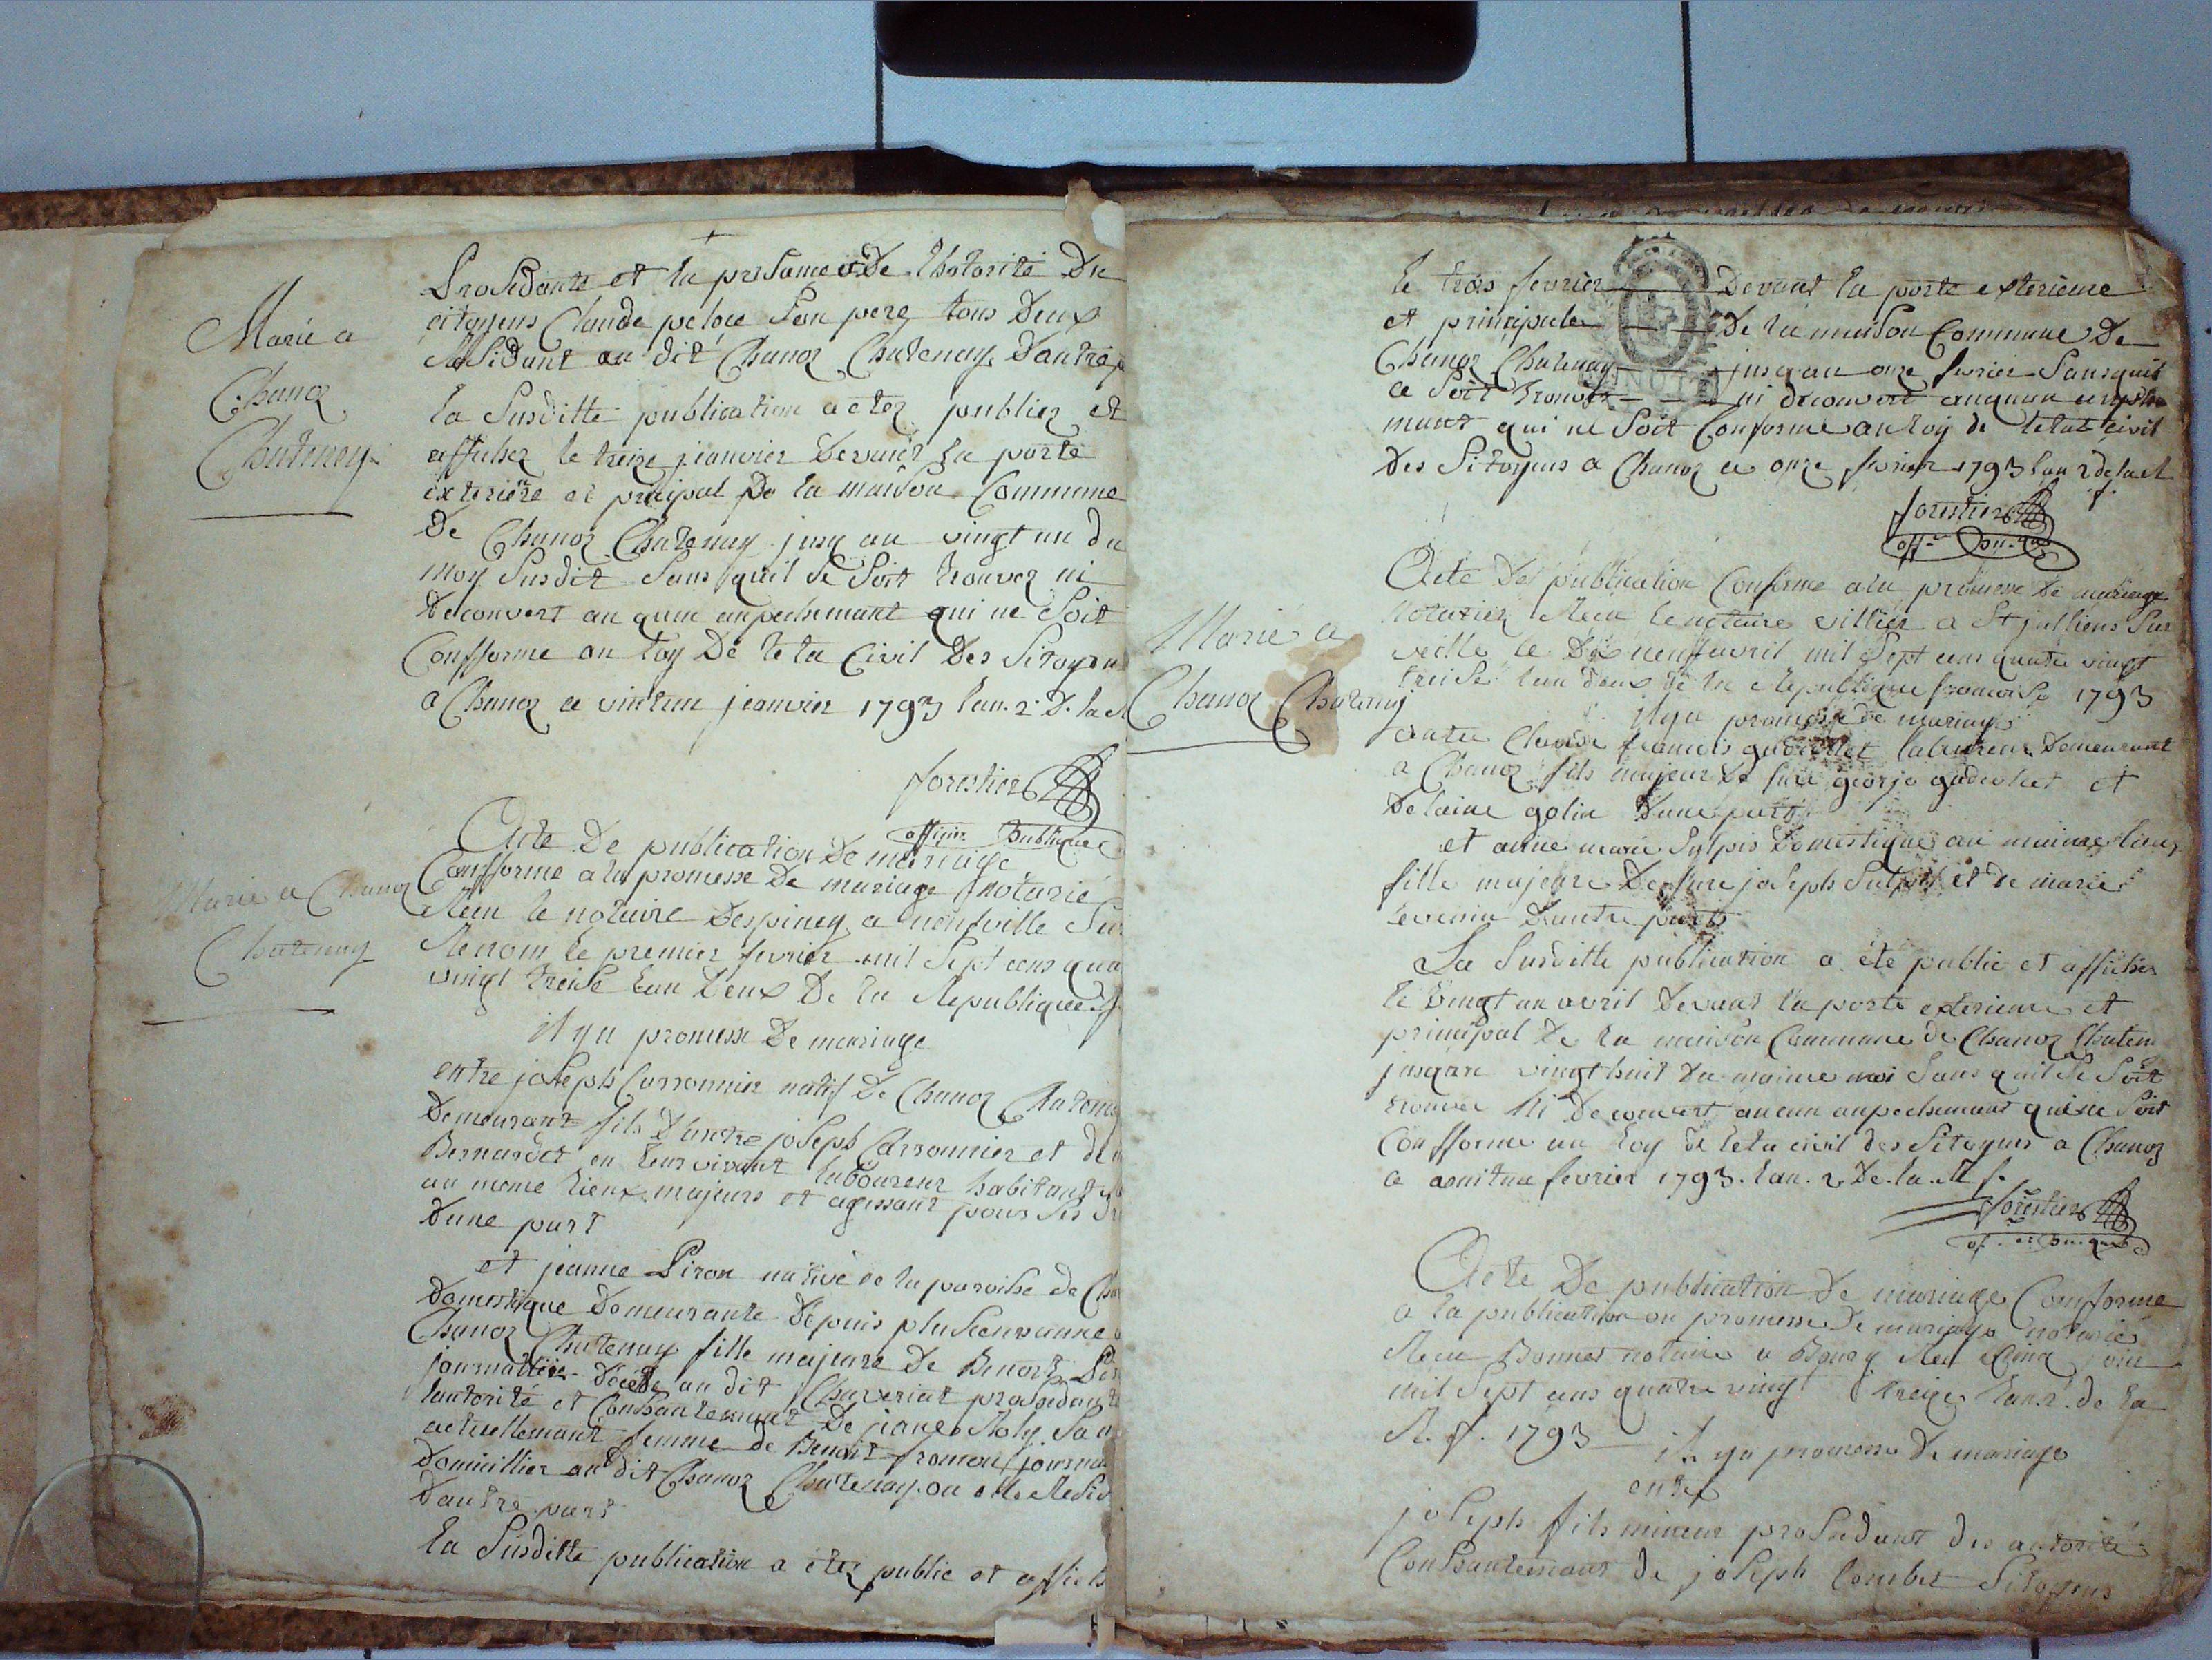 Marié a
Chanoz
Chatenay
Prosedante et la presame et De Lhotorité Du
citoyens Claude peloce Son pere tous Deux
Residant au dit Chanoz Chatenay Dautre
la Susditte publication a etez publiez et
afficher le treize jeanvier Devant la porte
exteriere et prncipal De la maison Commune
De Chanoz Chatenay jusq au vingt un du
moy Susdit Sans quil se Soit trouvez ni
Deconvert au qune anpechemant qui ne Soit
Confforme au loy De leta Civil Des Sitoyens
a Chanoz ce vintun jeanvier 1793 lan. 2. D. la
forestier
officier Publique
Marie a Chanoz
Chatenay
Acte De publication De mariage
Confforme a la promesse De mariage notarié
Recu le notaire Despiney a neufville Sur
Renom le premier fevrier mil Sept cens qua
vingt treise Lan Deux De la Republique f
il y a promesse De mariage
entre joseph Carronnier natif De Chanoz Chatenay
Demeurant fils Dautre joseph Carronnier et de
Bernardet en leur vivant laboureur habitant
au meme lieux majeurs et agissant pour Ses
Dune part
et jeanne Piron native de la paroisse de Cha
Domestique Demeurante Depuis plusieursanne
Chanoz Chatenay fille majeure de Benoit Pi
journallier Décédé au dit Chaveriat prosedante
lautorité et Consantemant De jeane Roly Sa m
actuellemant femme de Benoit fromon journa
Domicillier au dit Chanoz Chatenay ou elle Resid
Dautre part
la Susditte publication a étez public et affich
le trois fevrier Devant la porte exterieure
et principale De la maison Commune De
Chanoz Chatenay jusquau onze fevrier Sansquil
ce Soit trouvez ni decouvert auqun empeche
mant qui ne Soit Conforme au loy de letat civil
des Sitoyens a Chanoz ce onze fevrier 1793 lan 2 de la R
f.
forestier
off. pu. que
Marie a
Chanoz Chatenay
Acte De publication Conforme a la promesse De mariage
Notariez Recu le notaire villier a St julliens Sur
veille le Dix neuf avril mil Sept cens quatre vingt
treise lan deux de la Republique francoise 1793
il y a promesse de mariage
entre Claude francois gudeollet laboureur Demeurant
a Chanoz fils majeur De fure george gudeollet et
Delaine golin Dune part
et anne marie Sulpis Domestique au maime lieux
fille majeure De fure joseph Sulpis et de marie
levenin Dautre part
La Susditte publication a été public et affichez
le vingt un avril Devant la porte exterieure et
principal De la maison Commune de Chanoz Chaten
jusqau vingt huit Du maime moi Sans quil Se Soit
trouvez Ni Decouvert aucun anpechemant quine Soit
Confforme au loy de leta civil des Sitoyens a Chanoz
ce fevrier 1793. lan. 2. De. la. R f.
forestier
Acte De publication De mariage Confforme
a la publication ou promesse De mariage notariés
Recu Bonnet notaire a Bourg Reu cinq join
mil Sept cens quatre vingt treize lan.2. de la
R. f. 1793
il y a promesse De mariage
entre
joseph fils mineur prosedant des autorité
Consantemant de joseph Combet Sitoyens